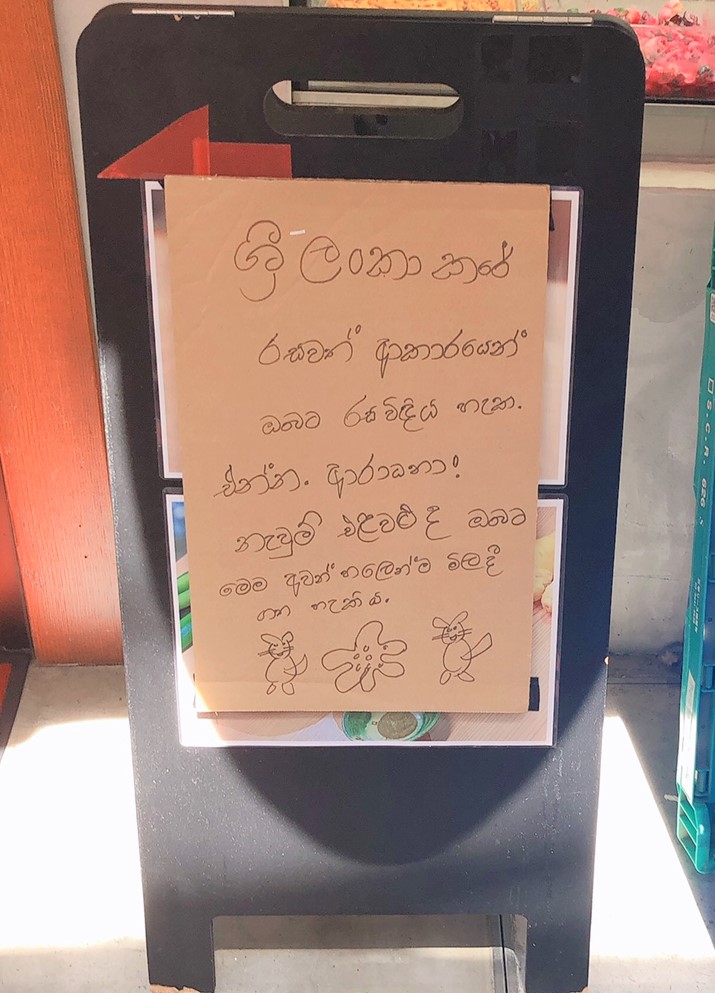 ශ්‍රී ලංකා කරේ
රසවත් ආකාරයෙන්
ඔබට රස විඳිය හැක.
එන්න. ආරාධනා!
නැවුම් එළවළු ද ඔබට
මෙම අවන් හලෙන්ම මිල දී
ගත හැකි ය.
S.C.R.